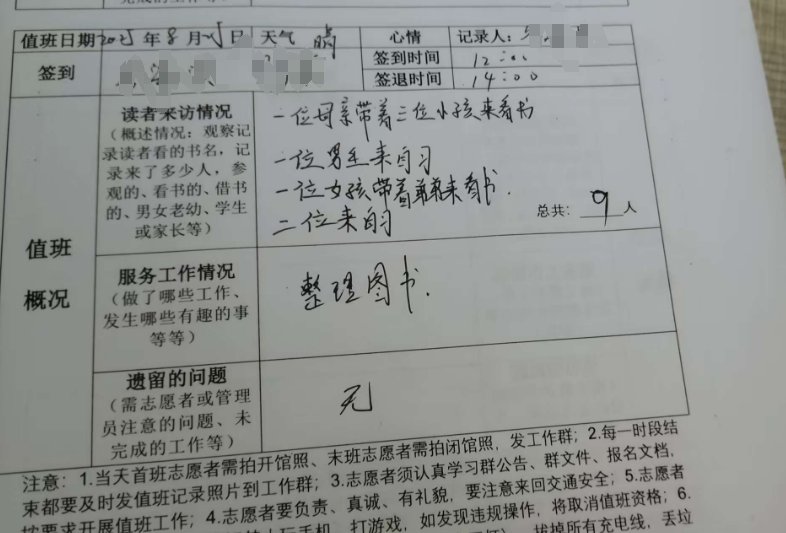 值班日期2025年8月 日 天气 晴 心情 记录人：
签到 签到时间 12:00
签退时间 14:00
值班
概况
读者来访情况
（概述情况：观察记
录读者看的书名，记
录来了多少人，参
观的、看书的、借书
的、男女老幼、学生
或家长等）
一位母亲带着三位小孩来看书
一位男生来自习
一位女孩带着弟弟来看书.
二位来自习
总共：9人
服务工作情况
（做了哪些工作、
发生哪些有趣的事
等等）
整理图书.
遗留的问题
（需志愿者或管理
员注意的问题、未
完成的工作等）
无
注意：1.当天首班志愿者需拍开馆照、末班志愿者需拍闭馆照，发工作群；2.每一时段结
束都要及时发值班记录照片到工作群；3.志愿者须认真学习群公告、群文件、报名文档，
按要求开展值班工作；4.志愿者要负责、真诚、有礼貌，要注意来回交通安全；5.志愿者
玩手机、打游戏，如发现违规操作，将取消值班资格；6.
拔掉所有充电线，丢垃